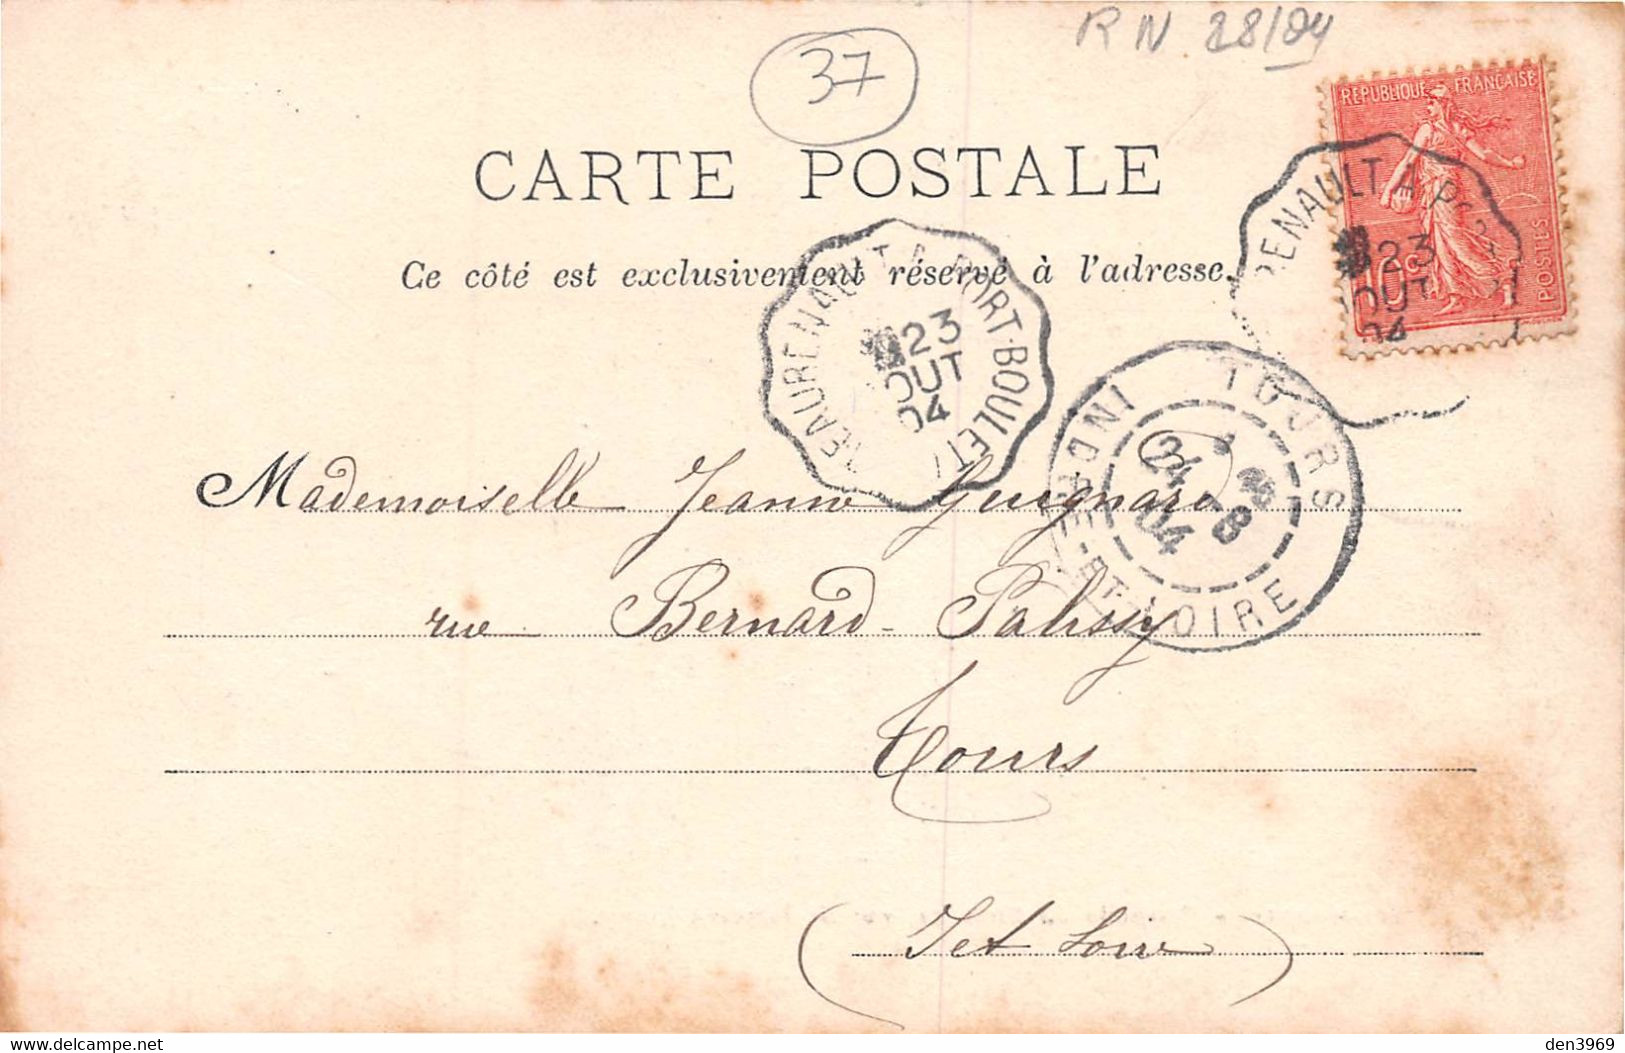 RN 28/04
37
REPUBLIQUE FRANÇAISE
POSTES
10c
CARTE POSTALE
RENAULT A PO
23
OUT
04
Ce côté est exclusivement réservé à l'adresse.
EAURENAULT A PORT-BOULET
23
OUT
04
TOURS
24 8
04
INDRE-ET-LOIRE
Mademoiselle Jeanne Guignard
rue Bernard-Palissy
Tours
(I et Loire)
www.delcampe.net
den3969